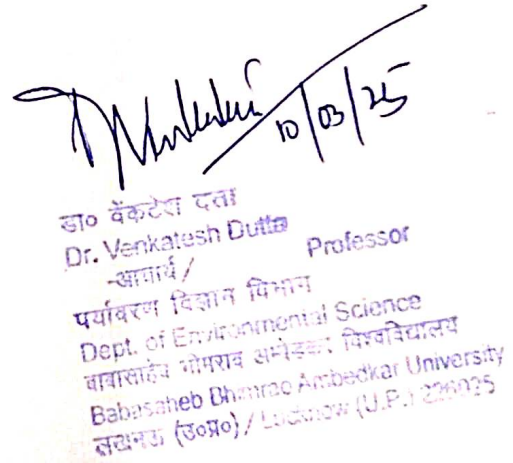 10/03/25
डा० वेंकटेश दत्ता
Dr. Venkatesh Dutta
-आचार्य / Professor
पर्यावरण विज्ञान विभाग
Dept. of Environmental Science
बाबासाहेब भीमराव अम्बेडकर विश्वविद्यालय
Babasaheb Bhimrao Ambedkar University
लखनऊ (उ०प्र०) / Lucknow (U.P.) 226025